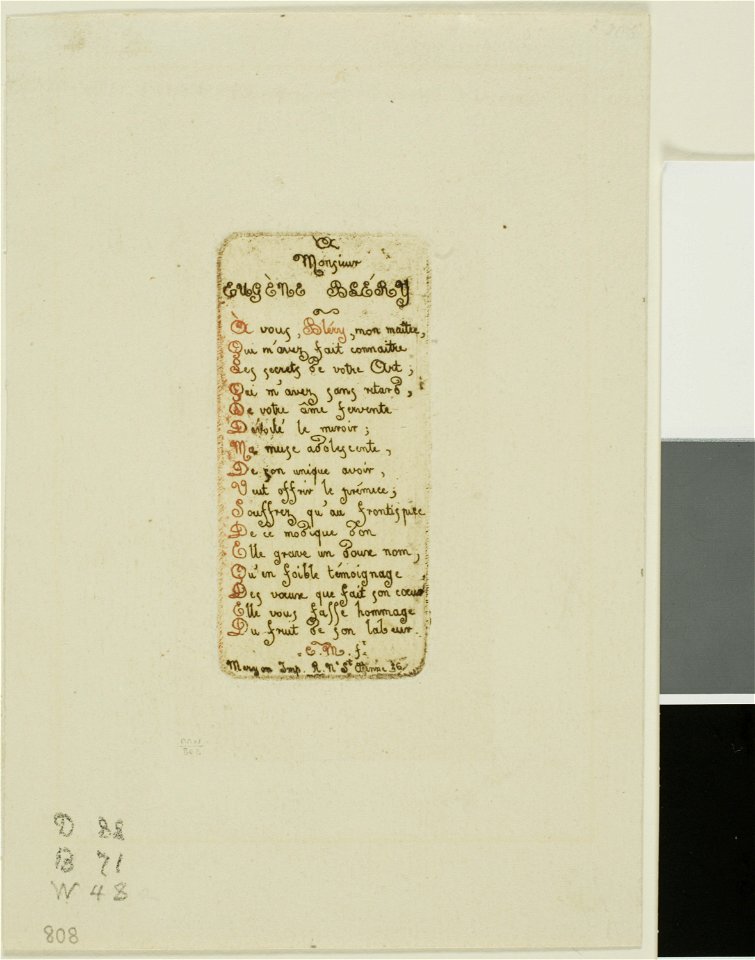 A
Monsieur
EUGÈNE BLÉRY
À vous, Bléry, mon maître,
Qui m'avez fait connaître
Les secrets de votre Art;
Qui m'avez sans retard,
De votre âme fervente
Dévoilé le miroir;
Ma muse adolescente,
De son unique avoir,
Veut offrir le prémice;
Souffrez qu'au frontispice
De ce modique don
Elle grave un doux nom,
Qu'en foible témoignage,
Des vœux que fait son cœur
Elle vous fasse hommage
Du fruit de son labeur.
C. M. ft
Meryon Imp. R. Ne St Etienne 26
D 88
B 71
W 48
808